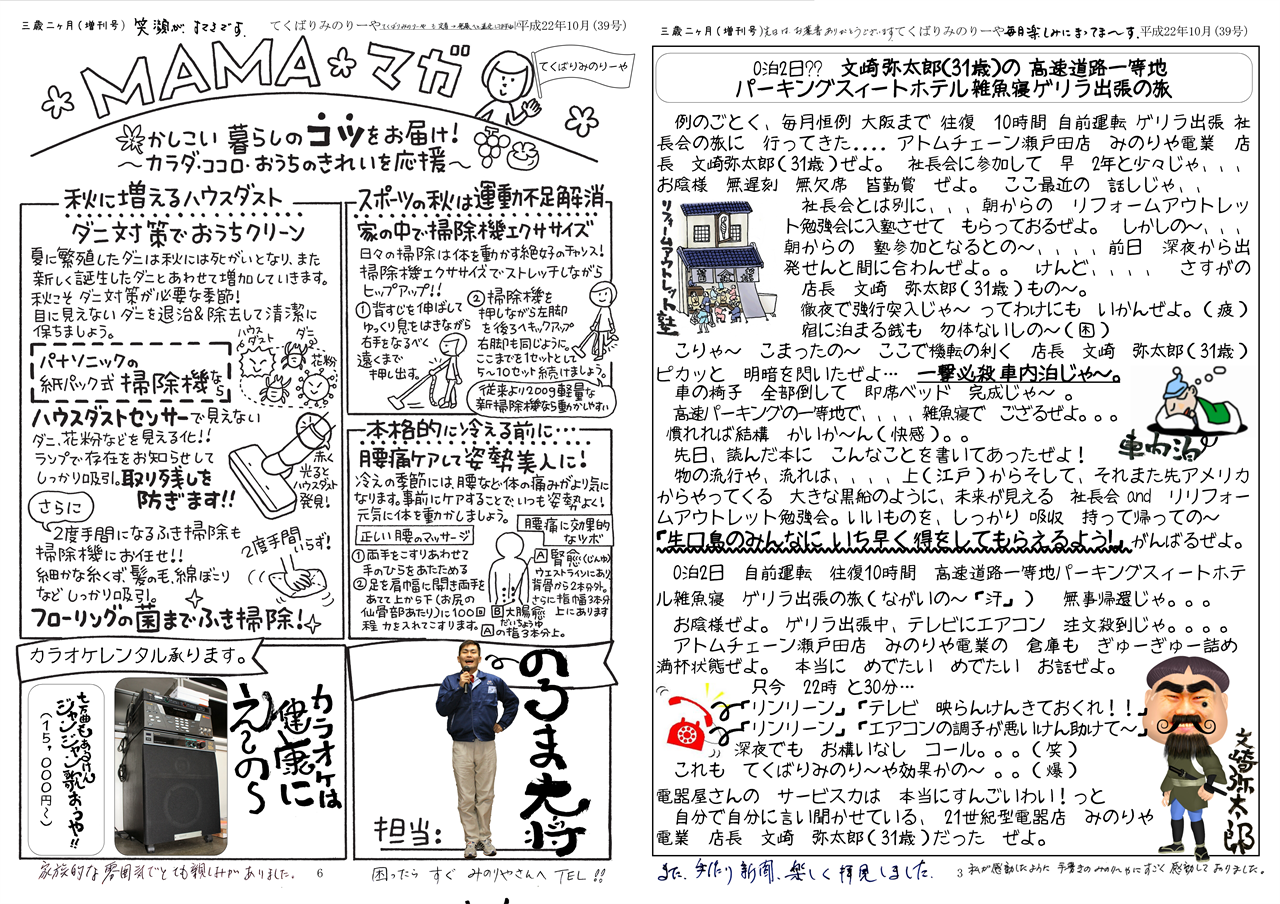 三歳二ヶ月(増刊号)
笑顔が、すてきです。
てくばりみのりーや
平成22年10月(39号)
MAMA★マガ
てくばりみのりーや
かしこい 暮らしの コツをお届け!
～カラダ・ココロ・おうちのきれいを応援～
秋に増えるハウスダスト
ダニ対策でおうちクリーン
夏に繁殖したダニは秋には死がいとなり、また
新しく誕生したダニとあわせて増加していきます。
秋こそ ダニ対策が必要な季節!
目に見えない ダニを退治&除去して清潔に
保ちましょう。
ハウスダスト
ダニ
花粉
パナソニックの
紙パック式 掃除機なら
ハウスダストセンサーで見えない
ダニ、花粉などを見える化!!
ランプで存在をお知らせして
しっかり吸引。取り残しを
防ぎます!!
赤く
光ると
ハウスダスト
発見!
さらに
2度手間になるふき掃除も
掃除機にお任せ!!
細かな糸くず、髪の毛、綿ぼこり
など しっかり吸引。
2度手間いらず!
フローリングの菌までふき掃除!
スポーツの秋は運動不足解消
家の中で掃除機エクササイズ
日々の掃除は体を動かす絶好のチャンス!
掃除機エクササイズでストレッチしながら
ヒップアップ!!
①背すじを伸ばして
ゆっくり息をはきながら
右手をなるべく
遠くまで
押し出す。
②掃除機を
押しながら左脚
を後ろへキックアップ
右脚も同じように。
ここまでを1セットとして
5～10セット続けましょう。
従来より200g軽量な
新掃除機なら動かしやすい
本格的に冷える前に…
腰痛ケアして姿勢美人に!
冷えの季節には、腰など体の痛みがより気に
なります。事前にケアすることで、いつも姿勢よく!
元気に体を動かしましょう。
正しい腰のマッサージ
①両手をこすりあわせて
手のひらをあたためる
②足を肩幅に開き両手を
あてて上から下(お尻の
仙骨部あたり)に100回
程力を入れてこすります。
腰痛に効果的
なツボ
A 腎愈(じんゆ)
ウエストラインにあり
背骨から2本分外。
さらに指幅3本分
上にあります
B 大腸愈
だいちょうゆ
Aの指3本分上。
カラオケレンタル承ります。
七百曲もあるけん
ジャンジャン歌おうや!!
(15,000円～)
カラオケは
健康に
え～のら
のろま大将
担当:
家族的な雰囲気でとても親しみがありました。
6
困ったら すぐ みのりやさんへ TEL!!
三歳二ヶ月(増刊号)
先日は、お葉書ありがとうございます。
てくばりみのりーや
毎月楽しみにまってま～す。
平成22年10月(39号)
0泊2日?? 文崎弥太郎(31歳)の 高速道路一等地
パーキングスィートホテル雑魚寝ゲリラ出張の旅
例のごとく、毎月恒例 大阪まで 往復 10時間 自前運転 ゲリラ出張 社
長会の旅に 行ってきた.... アトムチェーン瀬戸田店 みのりや電業 店
長 文崎弥太郎(31歳)ぜよ。 社長会に参加して 早 2年と少々じゃ、、、
お陰様 無遅刻 無欠席 皆勤賞 ぜよ。 ここ最近の 話しじゃ、、
リフォームアウトレット塾
社長会とは別に、、、朝からの リフォームアウトレッ
ト勉強会に入塾させて もらっておるぜよ。 しかしの～、、、
朝からの 塾参加となるとの～、、、、前日 深夜から出
発せんと間に合わんぜよ。。 けんど、、、、 さすがの
店長 文崎 弥太郎(31歳)もの～。
徹夜で強行突入じゃ～ ってわけにも いかんぜよ。(疲)
宿に泊まる銭も 勿体ないしの～(困)
こりゃ～ こまったの～ ここで機転の利く 店長 文崎 弥太郎(31歳)
ピカッと 明暗を閃いたぜよ… 一撃必殺 車内泊じゃ～。
車の椅子 全部倒して 即席ベッド 完成じゃ～ 。
高速パーキングの一等地で、、、、雑魚寝で ござるぜよ。。。
慣れれば結構 かいか～ん(快感)。。
車内泊
先日、読んだ本に こんなことを書いてあったぜよ!
物の流行や、流れは、、、、上(江戸)からそして、それまた先アメリカ
からやってくる 大きな黒船のように、未来が見える 社長会 and リリフォー
ムアウトレット勉強会。いいものを、しっかり 吸収 持って帰っての～
『生口島のみんなに いち早く得をしてもらえるよう!』がんばるぜよ。
0泊2日 自前運転 往復10時間 高速道路一等地パーキングスィートホテ
ル雑魚寝 ゲリラ出張の旅(ながいの～『汗』) 無事帰還じゃ。。。
お陰様ぜよ。 ゲリラ出張中、テレビにエアコン 注文殺到じゃ。。。。
アトムチェーン瀬戸田店 みのりや電業の 倉庫も ぎゅーぎゅー詰め
満杯状態ぜよ。 本当に めでたい めでたい お話ぜよ。
只今 22時 と30分…
『リンリーン』『テレビ 映らんけんきておくれ!!』
『リンリーン』『エアコンの調子が悪いけん助けて～』
深夜でも お構いなし コール。。。(笑)
これも てくばりみのり～や効果かの～ 。。(爆)
電器屋さんの サービス力は 本当にすんごいわい!っと
自分で自分に言い聞かせている、21世紀型電器店 みのりや
電業 店長 文崎 弥太郎(31歳)だった ぜよ。
文崎弥太郎
また、手作り新聞、楽しく拝見しました。
3
私が感動したように 手書きの みのりーやにすごく 感動しておりました。